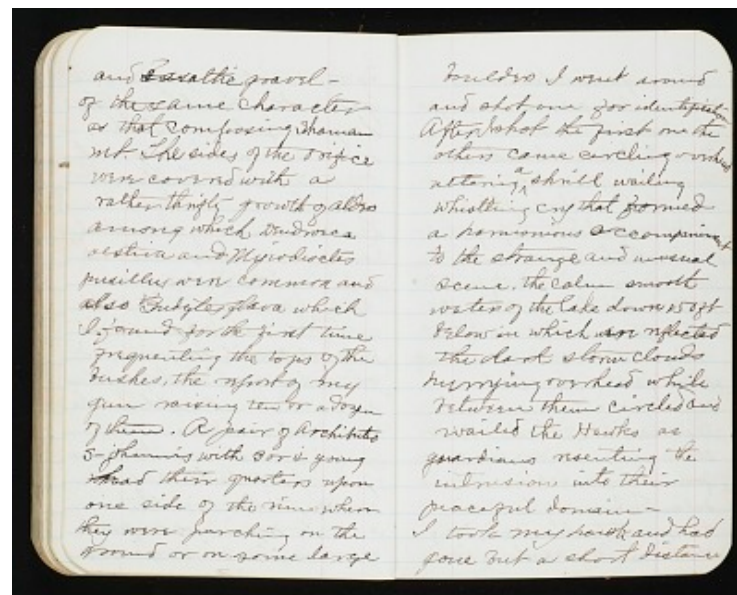 and basaltic gravel -
of the same character
as that composing Shaman
mt. The sides of the orifice
were covered with a
rather thrifty growth of alders
among which Dendroica
aestiva and Myiodioctes
pusillus were common and
also Budytes flava which
I found for the first time
frequenting the tops of the
bushes, the report of my
gun raising ten or a dozen
of them. A pair of Archibuteo
S- Johannis with 3 or 4 young
had their quarters upon
one side of the rim where
they were perching on the
ground or on some large
boulders I went around
and shot one for identification
After I shot the first one the
others came circling overhead
uttering a shrill wailing
whistling cry that formed
a harmonious accompaniment
to the strange and unusual
scene. the calm smooth
water of the lake down 150 ft
below in which were reflected
the dark storm clouds
hurrying overhead while
between them circled and
wailed the Hawks as
guardians resenting the
intrusion into their
peaceful domain -
I took my hawk and had
gone but a short distance